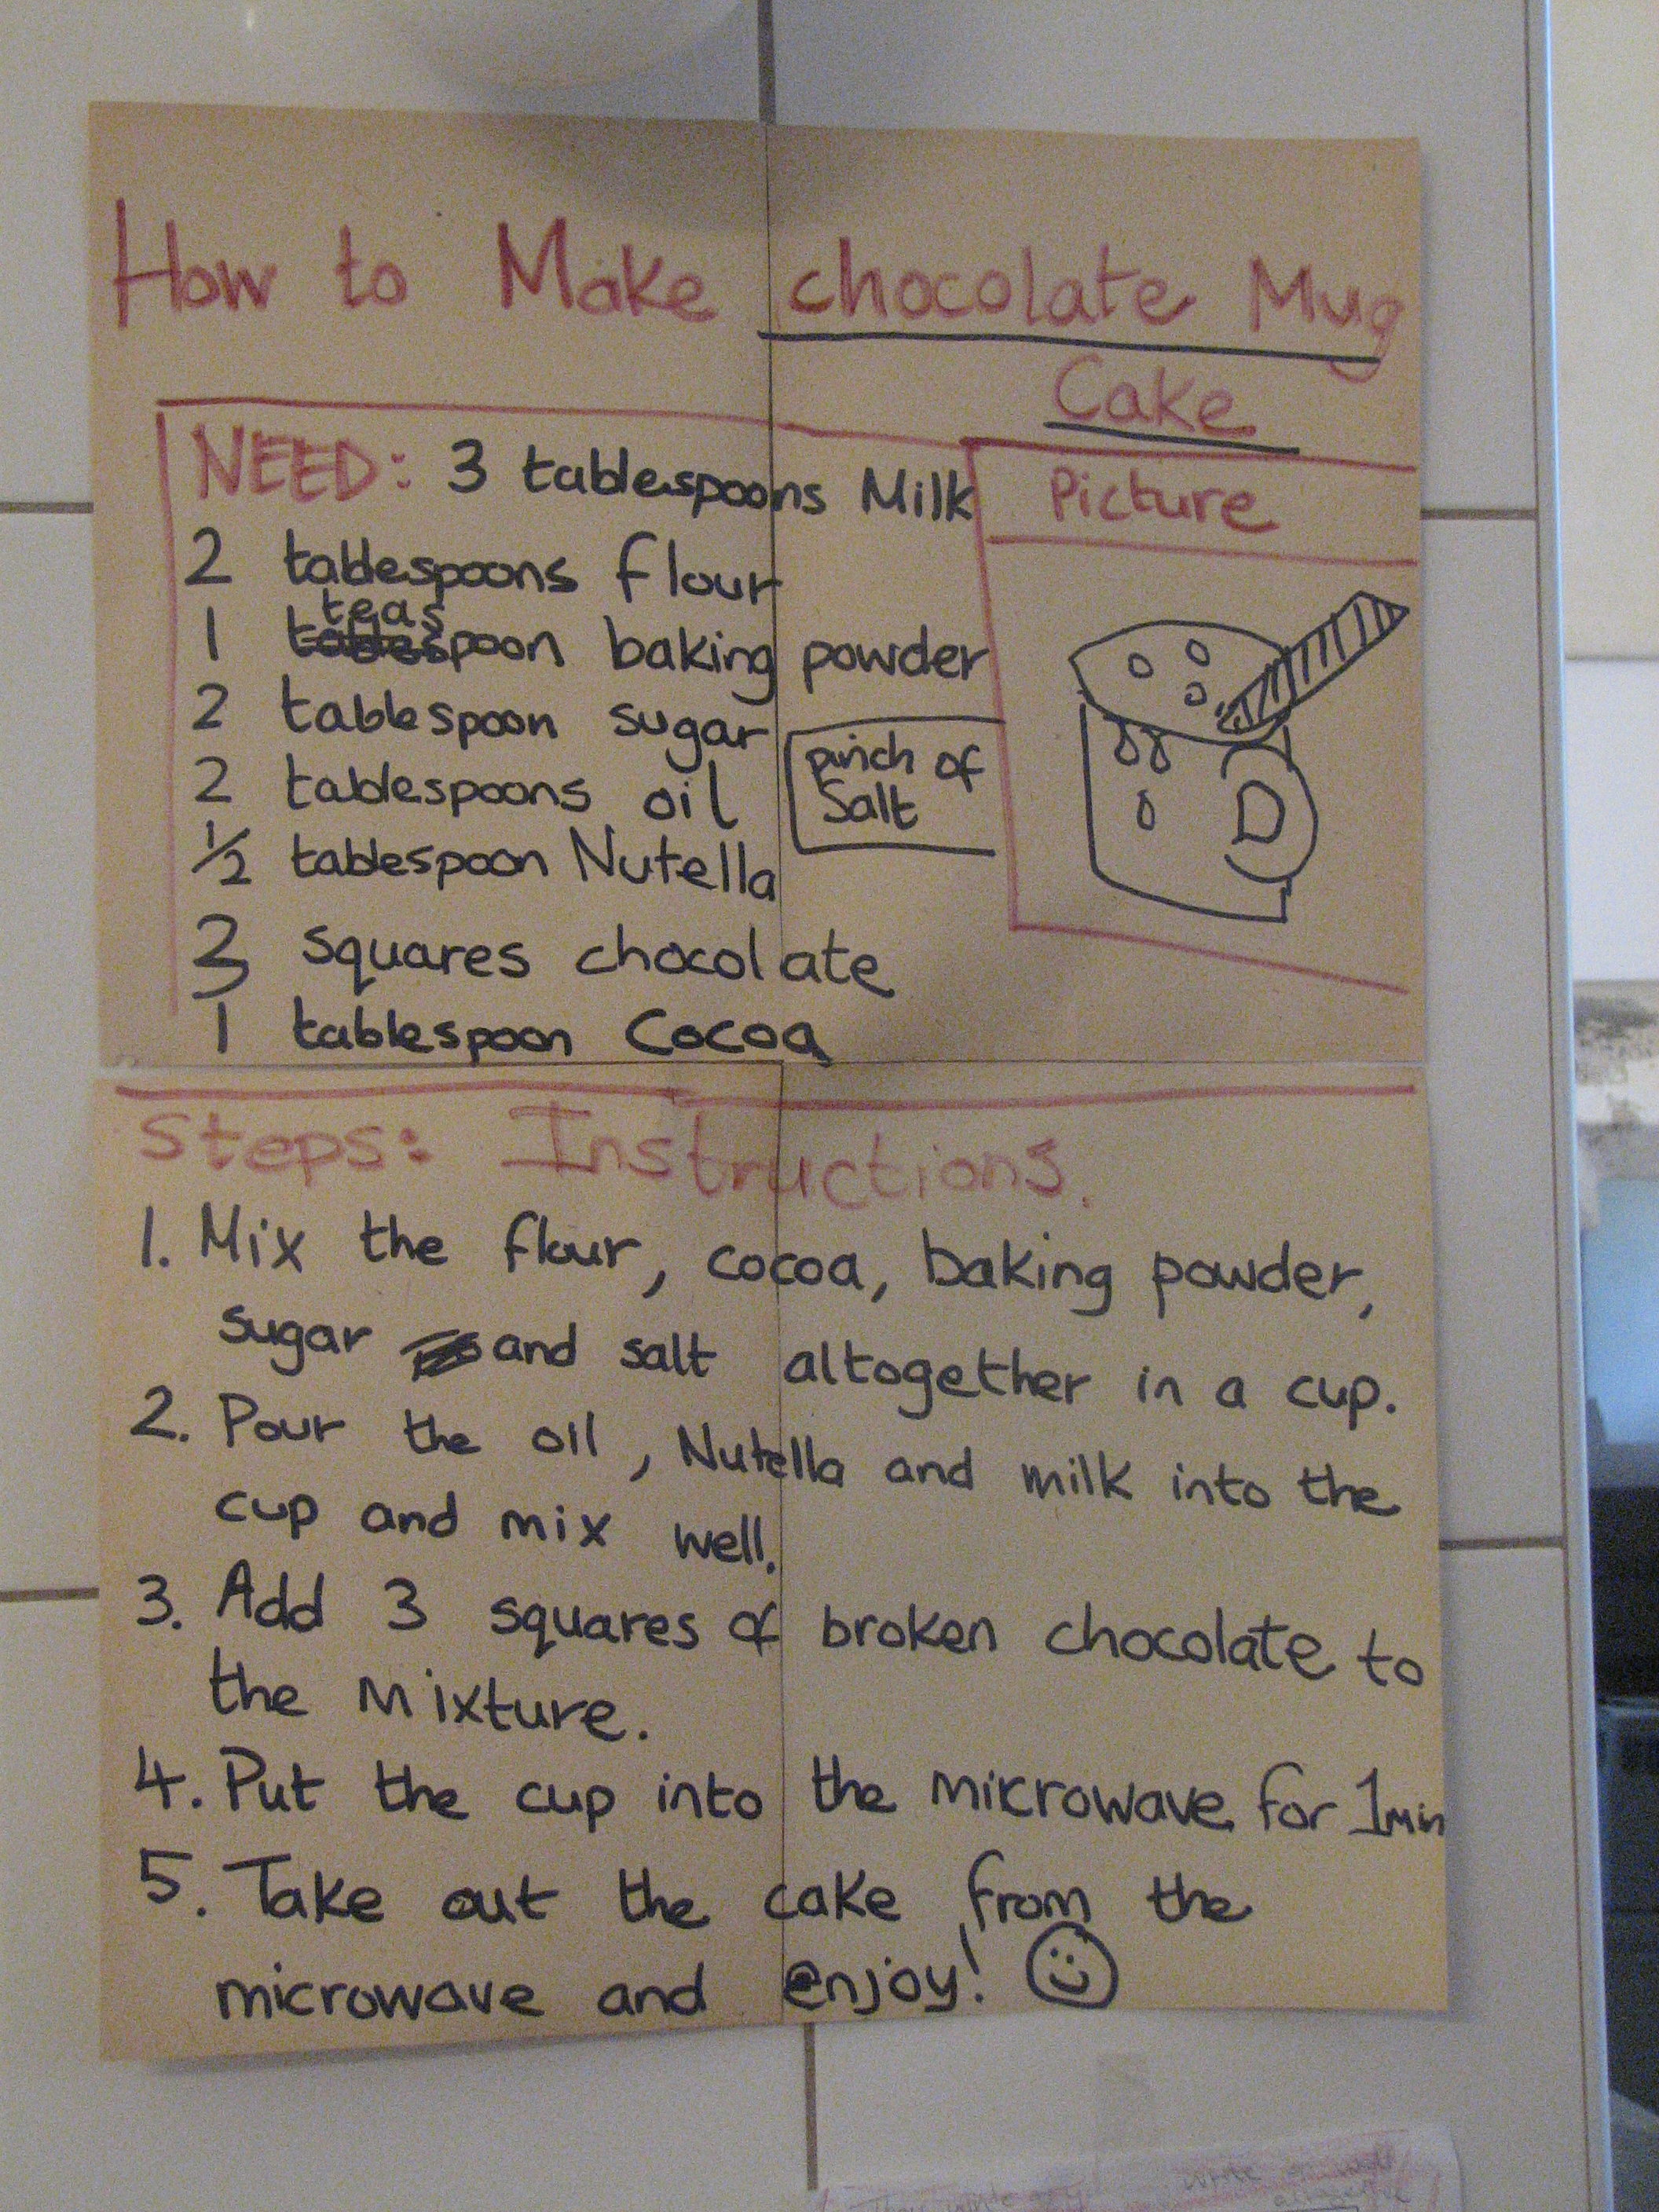 How to Make chocolate Mug
Cake
NEED: 3 tablespoons Milk
2 tablespoons flour
1 teaspoon baking powder
2 tablespoon sugar
2 tablespoons oil
1/2 tablespoon Nutella
3 squares chocolate
1 tablespoon Cocoa
pinch of
Salt
Picture
Steps: Instructions.
1. Mix the flour, cocoa, baking powder,
sugar and salt altogether in a cup.
2. Pour the oil, Nutella and milk into the
cup and mix well.
3. Add 3 squares of broken chocolate to
the Mixture.
4. Put the cup into the microwave for 1min
5. Take out the cake from the
microwave and enjoy!